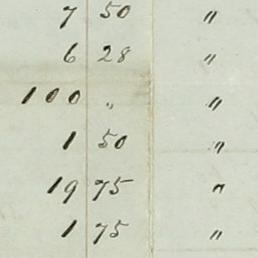 7 50 "
6 28 "
100 " "
1 50 "
19 75 "
1 75 "